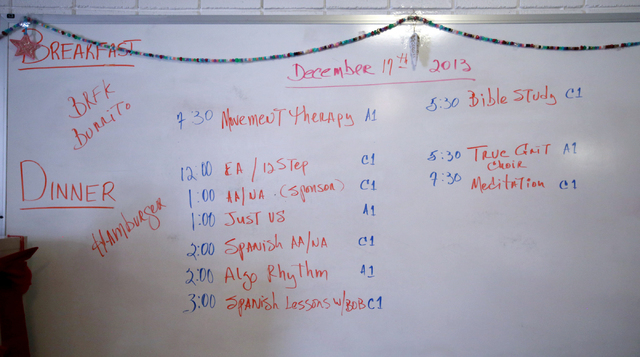 BREAKFAST
December 17th 2013
BRFK
BURRITO
7:30 Movement Therapy A1
5:30 Bible Study C1
DINNER
Hamburger
12:00 EA / 12 Step C1
1:00 AA/NA (Sponsor) C1
1:00 Just Us A1
2:00 Spanish AA/NA C1
2:00 Algo Rhythm A1
3:00 Spanish Lessons w/BOB C1
5:30 True Grit A1
Choir
7:30 Meditation C1